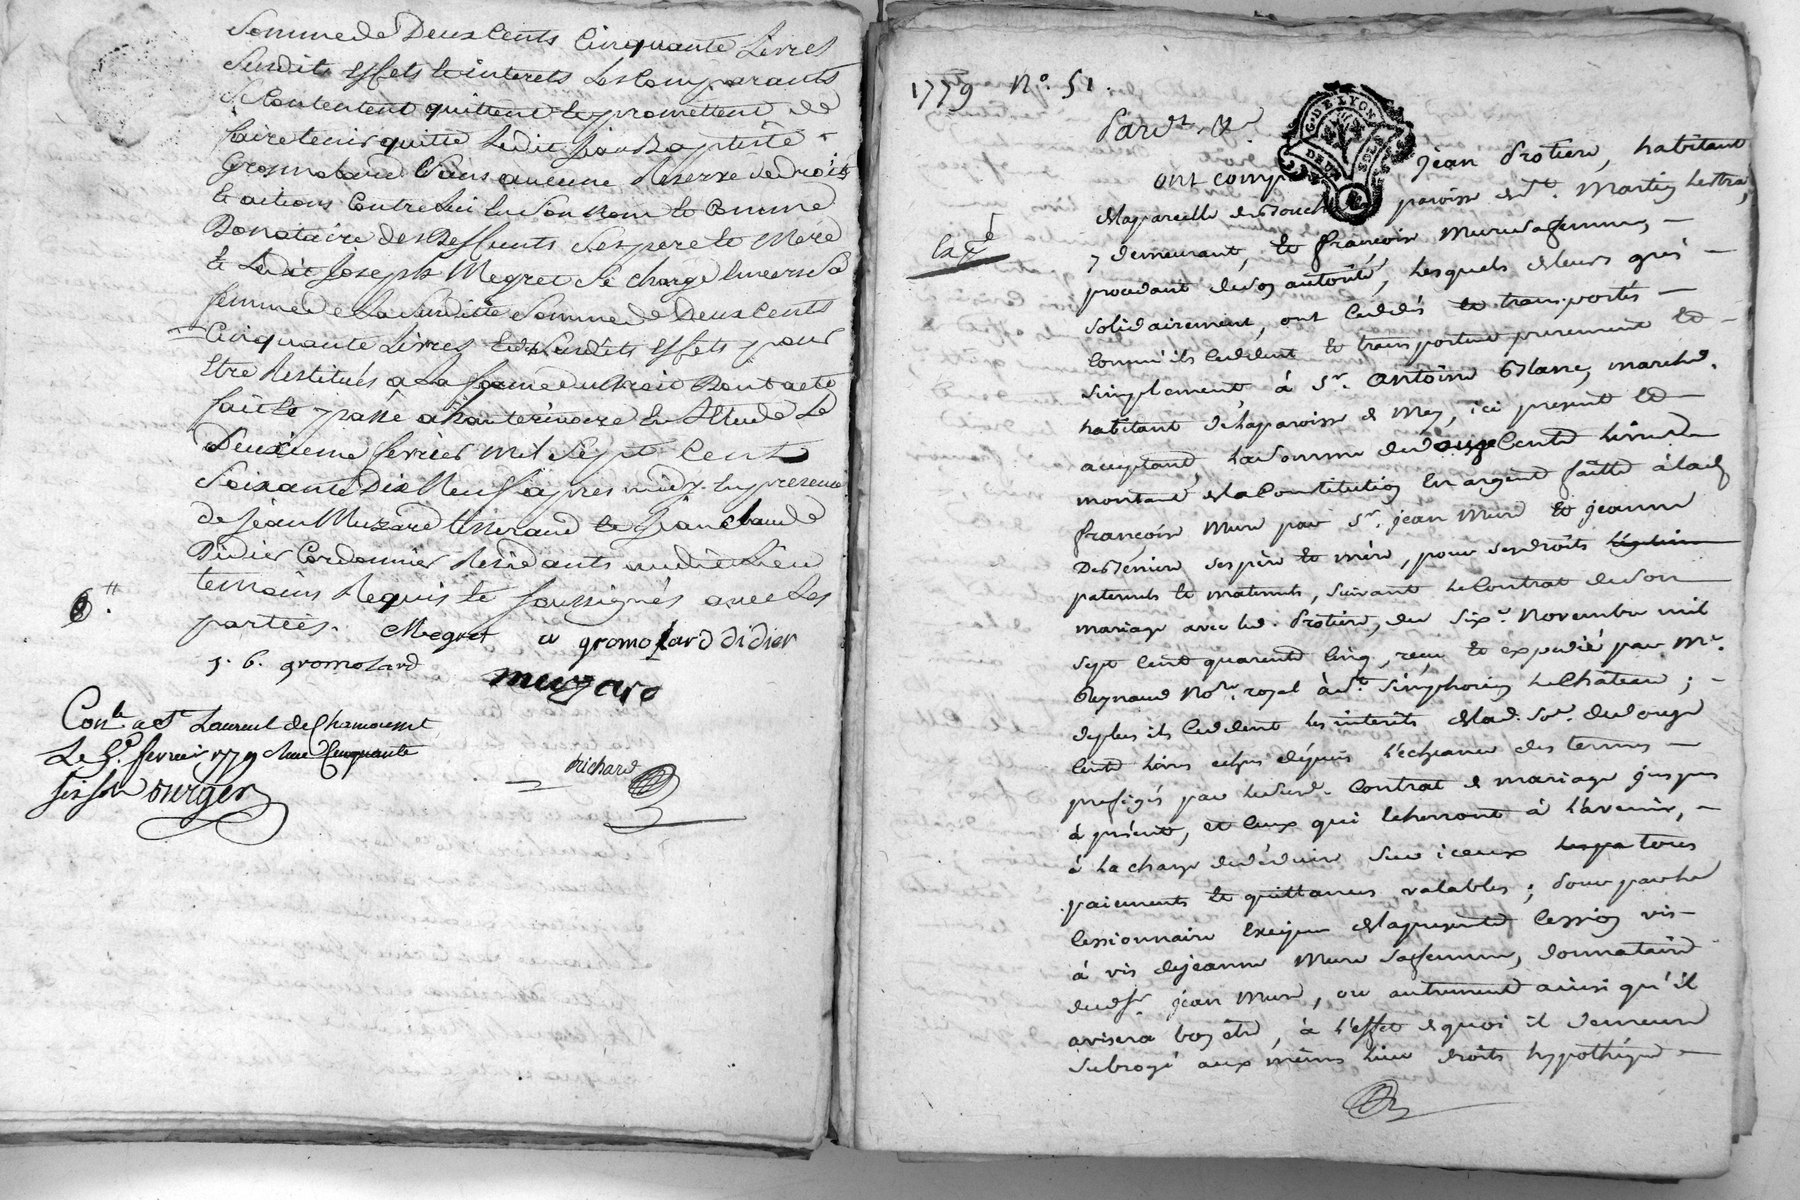 Somme de Deux Cents Cinquante Livres
Susdits Effets & interets Les Comparants
Se Contentent quittent & promettent de
faire tenir quitte Ledit Jean Baptiste
Gromolard Sans aucune Reserve de droits
& actions Contre Lui En Son Nom & Comme
Donataire des Deffunts Ses pere & Mere
& Ledit Joseph Megret Se Charge Envers Sa
femme de La Susditte Somme de Deux Cents
Cinquante Livres Et Susdits Effets pour
Etre Restitués a La forme du
fait & passé a hauterivoire En Etude Le
Deuxieme fevrier Mil Sept Cent
Soixante Dix Neuf apres midy En presence
de Jean Muzard tisserand & Jean Claude
Didier Cordonnier Residants audit Lieu
temoins Requis & Soussignés avec Les
parties.
6"
Megret a gromolard didier
J. B. gromolard
muzard
Con.le a St Laurent de Chamousset
Le fevrier 1779 Cinquante
six sols
Richard
1779 N.° 51.
Pard.t &
ont comp Jean Protiere, habitant
de la parcelle de paroisse de St. Martin Lestra,
y demeurant, & françoise Mure sa femme, –
procedant de son autorité, Lesquels de leurs grés –
solidairement, ont Cedés & transportés –
Comm'ils Cedent & transportent purement & –
simplement, à Sr. Antoine Blanc, marchd.
habitant de la paroisse de Mey, ici present & –
acceptant, la somme de douze Cents Livres
montant de la Constitution En argent faitte à lad.
françoise Mure par Sr. Jean Mure & Jeanne
ses père & mère, pour ses droits
paternels & maternels, suivant Le Contrat de son
mariage avec led. Protiere, du six.e Novembre mil
sept Cent quarente Cinq, reçu & expedié par Me.
Reynaud No.re royal à St. Simphorien Le Château; –
de plus ils Cedent les interêts de lad. Som. de douze
Cent Livres echus depuis L'echeance des termes –
prefigés par Le susd. Contrat de mariage jusques
à présent, et Ceux qui echerront à L'avenir, –
à La charge de déduire sur iceux tous
paiements & quittances valables; pour par Le
Cessionnaire Exiger de la presente Cession vis–
à vis de Jeanne Mure sa femme, donnataire
dud. Sr. Jean Mure, ou autrement ainsi qu'il
avisera bon être, à L'effet de quoi il demeure
subrogé aux mêmes Lieu droits hypothéque –
G. DE LYON
DEUX SOLS